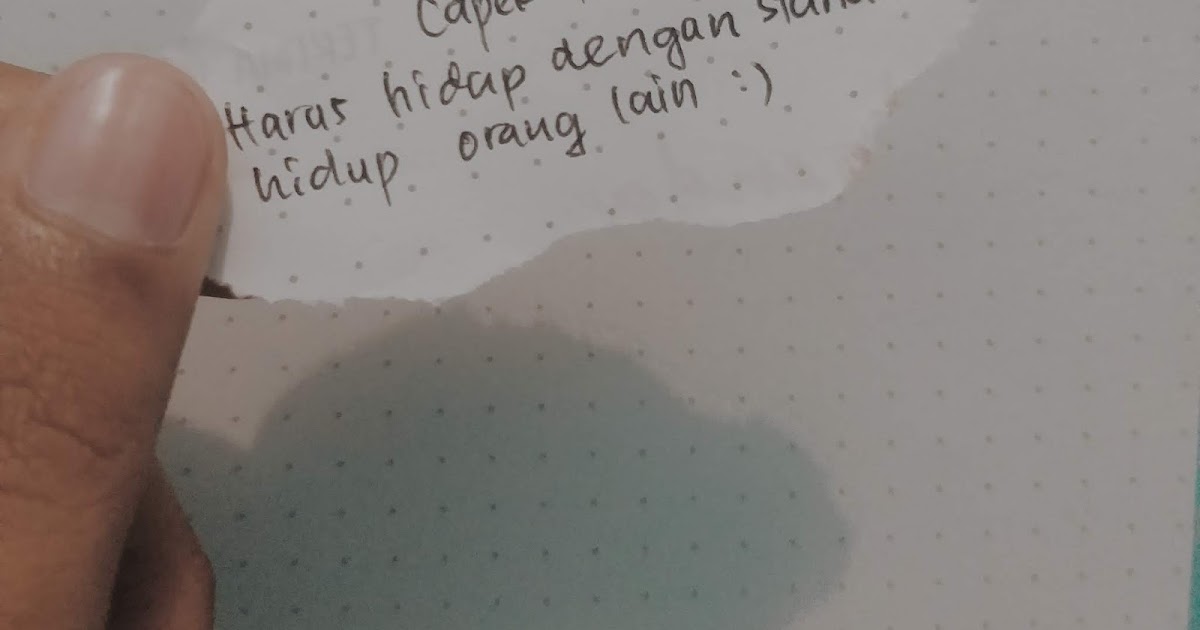 Harus hidup dengan
hidup orang lain :)